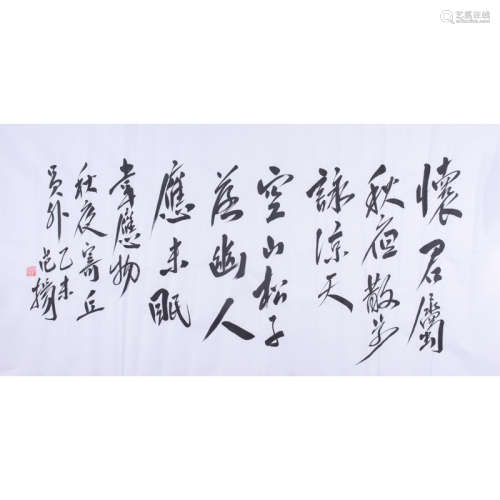 懷君屬
秋夜散步
詠涼天
空山松子
落幽人
應未眠
韋應物
秋夜寄丘
員外 乙未
范揚